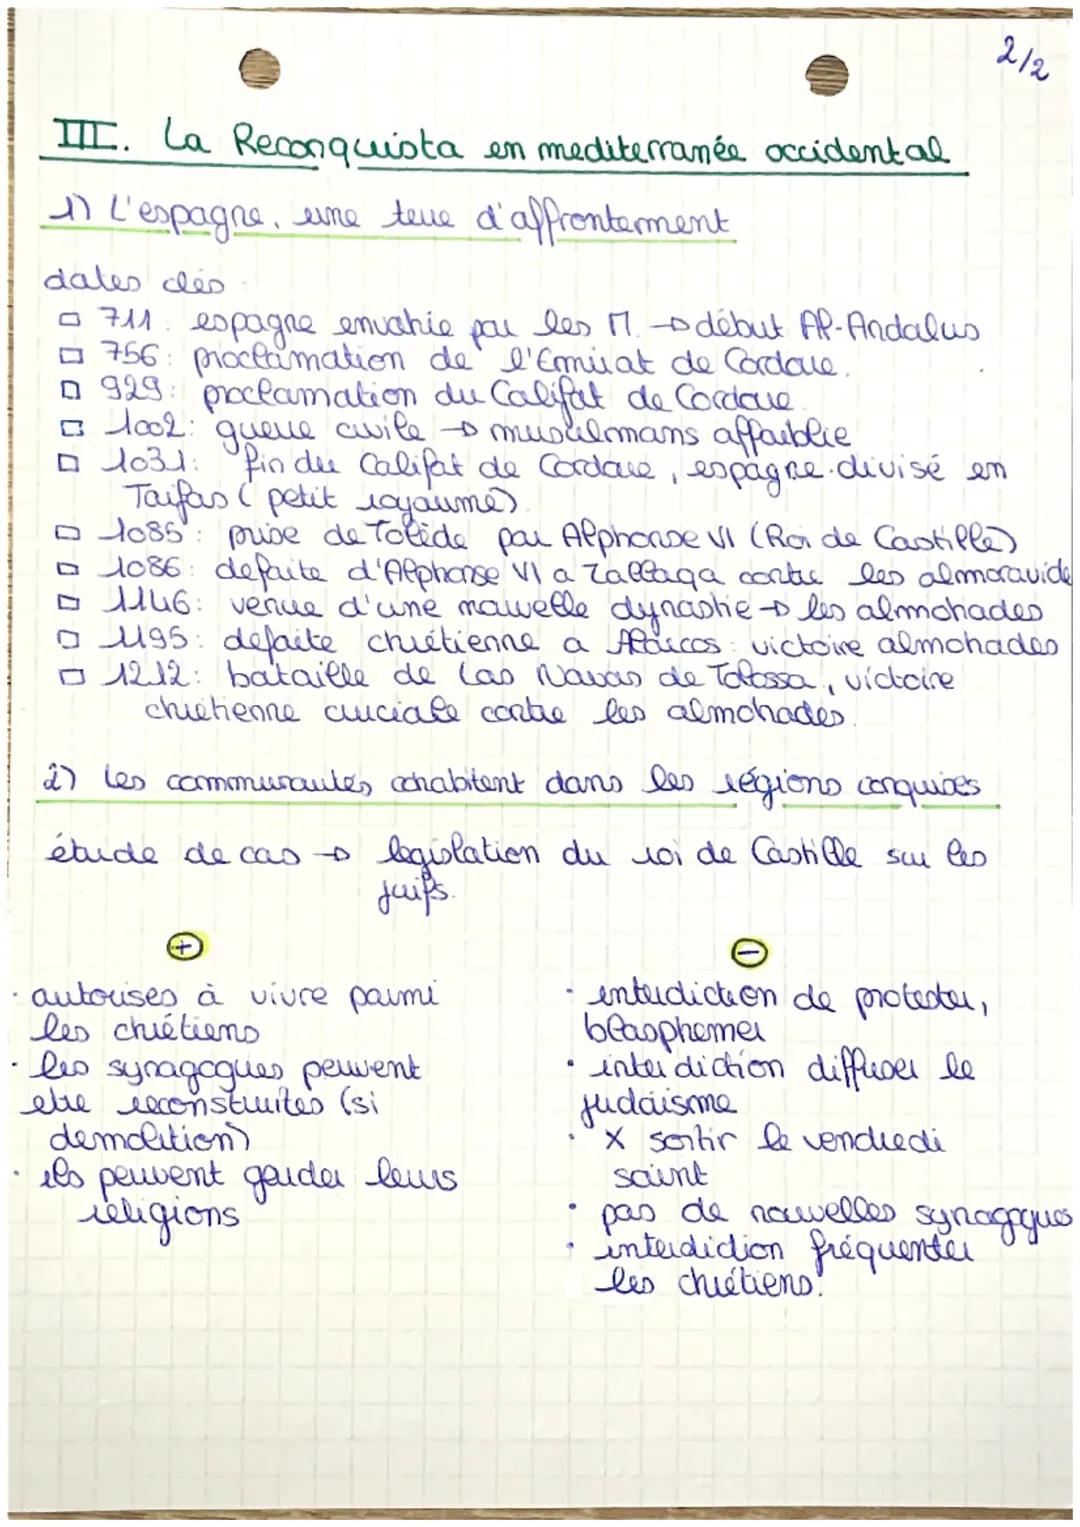 2/2
III. La Reconquista en mediterranée occidental
1) L'espagne, une terre d'affrontement
dates clés :
711 : espagne envahie par les M. → début Al-Andalus
756 : proclamation de l'Emirat de Cordoue.
929 : proclamation du Califat de Cordoue.
1002 : guerre civile → musulmans affaiblie
1031 : fin du Califat de Cordoue, espagne divisé en
Taifas (petit royaume)
1085 : prise de Tolède par Alphonse VI (Roi de Castille)
1086 : defaite d'Alphonse VI a Zallaqa contre les almoravide
1146 : venue d'une nouvelle dynastie → les almohades
1195 : defaite chrétienne a Alarcos : victoire almohades
1212 : bataille de Las Navas de Tolossa, victoire
chrétienne cruciale contre les almohades.
2) les communautés cohabitent dans les régions conquises
étude de cas → legislation du roi de Castille sur les
juifs.
+
-
· autorises à vivre parmi
les chrétiens
· les synagogues peuvent
etre reconstruites (si
demolition)
· ils peuvent garder leurs
religions
· interdiction de protester,
blasphemer
· interdiction diffuser le
judaisme
· X sortir le vendredi
saint
· pas de nouvelles synagogues
· interdiction fréquenter
les chrétiens.